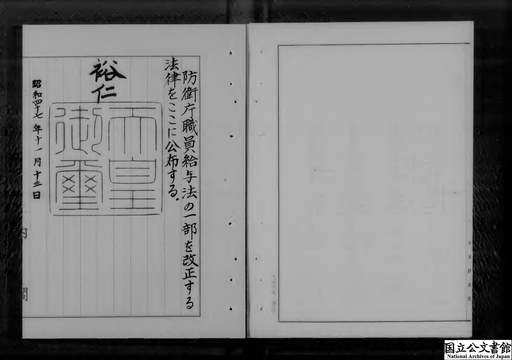 防衛庁職員給与法の一部を改正する
法律をここに公布する。
裕仁
天皇
御璽
昭和四十七年十一月十三日
内閣
国立公文書館
National Archives of Japan